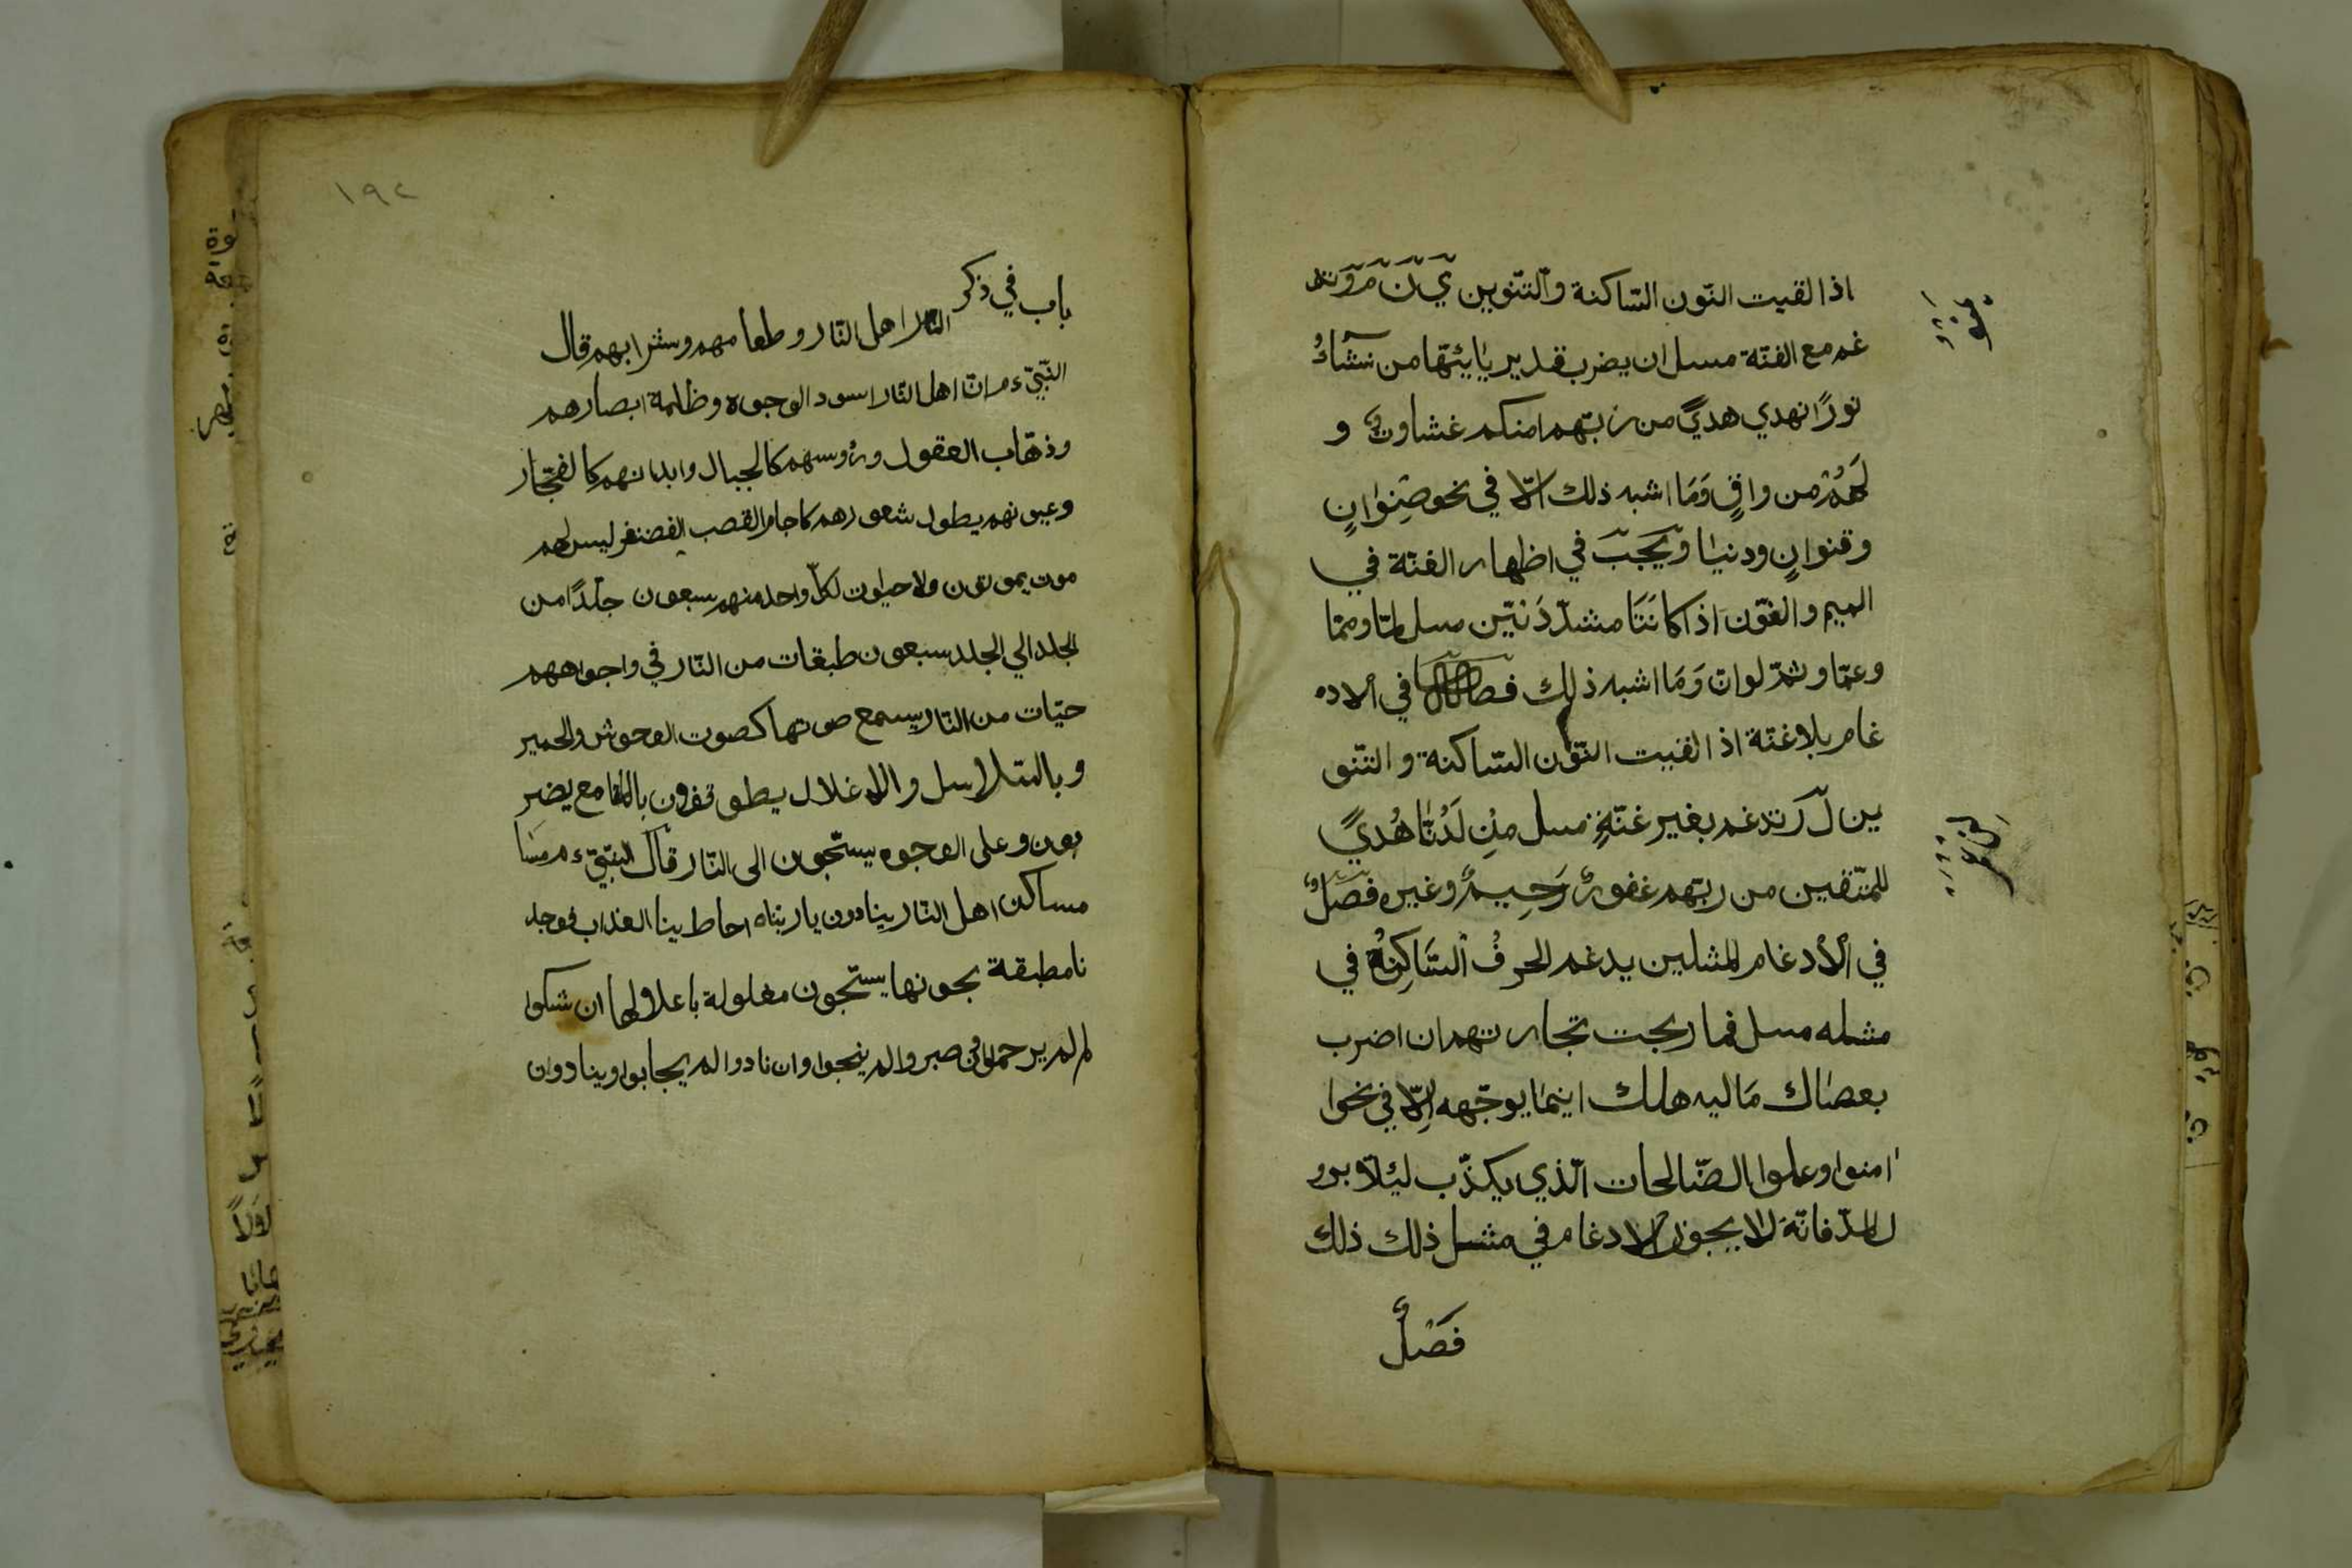 اذا لقيت النّون السّاكنة والتّنوين يَ نَ مَ وَ تد
غم مع الغنّة مسل ان يضرب قدير يايّتها من نشاءُ
نورًا نهدي هديً من ربّهم امنكم غشاوةٌ و
لَهُمْ من واقٍ وَمَا اشبه ذلك الّا في نحو صِنوانٍ
وقنوانٍ ودنيا ويَجبَ في اظهار الغنّة في
الميم والنّون اذا كانَتَا مشدّدَتيْن مسل لمّا وممّا
وعمّا وثمّ لوانّ وَمَا اشبه ذلك في الاد
غام بلا غنّة اذا لقيت النّون السّاكنة والتنو
ين لَ رَ تدغم بغير غنّةٍ مسل مِنْ لَدُنَّا هُديً
للمتّقين من ربّهم غفورٌ رَحِيمٌ وغيره فصلٌ
في الْأدغام المثلين يدغم الحرفُ السَّاكِنُ في
مثله مسل فما ربحت تجارتهم ان اضرب
بعصاك مَاليه هلك اينما يوجّهه اِلّا في نحوا
امنوا وعملوا الصّالحات الّذي يكذّب ليئلّا برو
ل المدّ فانّه لا يجوز الادغام في مثسل ذلك ذلك
فَصْلٌ
١٩٢
باب في ذكر
النار اهل النّار وطعامهم وشرابهم قال
النّبيّ ءم انّ اهل النّار اسود الوجوه وظلمة ابصارهم
وذهّاب العقول ورؤسهم كالجبال وابدانهم كالفخّار
وعيونهم يطول شعورهم كاجام القصب الغضنفر ليس لهم
موت يموتون ولا حياوت لكلّ واحد منهم سبعون جلدًا من
الجلد الي الجلد سبعون طبقات من النّار في واجواههم
حيّات من النّار يسمع صوتها كصوت الوحوش والحمير
وبالسّلاسل والاغلال يطوقون بالمقامع يضر
بون وعلى الوجوه يستحبون الى النّار قال النّبيّ ءم
مساكن اهل النّار ينادون ياربّناه احاط بينا العذاب فوجد
نا مطبقة بجونها يستحبون مغلولة باغلالها ان شكوا
لم يرحموا صبروا لم ينجوا وان نادوا لم يجابوا وينادون